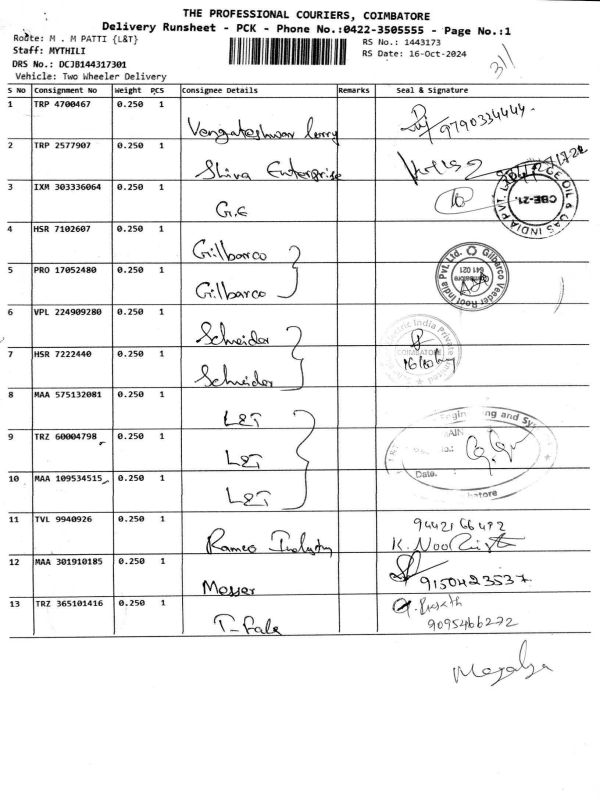 THE PROFESSIONAL COURIERS, COIMBATORE
Delivery Runsheet - PCK - Phone No.:0422-3505555 - Page No.:1
Route: M . M PATTI {L&T}
RS No.: 1443173
Staff: MYTHILI
RS Date: 16-Oct-2024
DRS No.: DCJB144317301
Vehicle: Two Wheeler Delivery
311
S No Consignment No Weight PCS Consignee Details Remarks Seal & Signature
1 TRP 4700467 0.250 1 Vengateshwar lorry 9790334444
2 TRP 2577907 0.250 1 Shiva Enterprise
3 IXM 303336064 0.250 1 G.E
OIL & GAS INDIA PVT.
CBE-21.
4 HSR 7102607 0.250 1 Gilbarco
5 PRO 17052480 0.250 1 Gilbarco
Gilbarco Veeder Root India Pvt. Ltd.
641 021
6 VPL 224909280 0.250 1 Schneider
7 HSR 7222440 0.250 1 Schneider
Electric India Private Limited
COIMBATORE
8 MAA 575132081 0.250 1 L&T
9 TRZ 60004798 0.250 1 L&T
10 MAA 109534515 0.250 1 L&T
Date.
11 TVL 9940926 0.250 1 Ramco Industry
12 MAA 301910185 0.250 1 Messer 9150423537
13 TRZ 365101416 0.250 1 T-Fale
9095466272